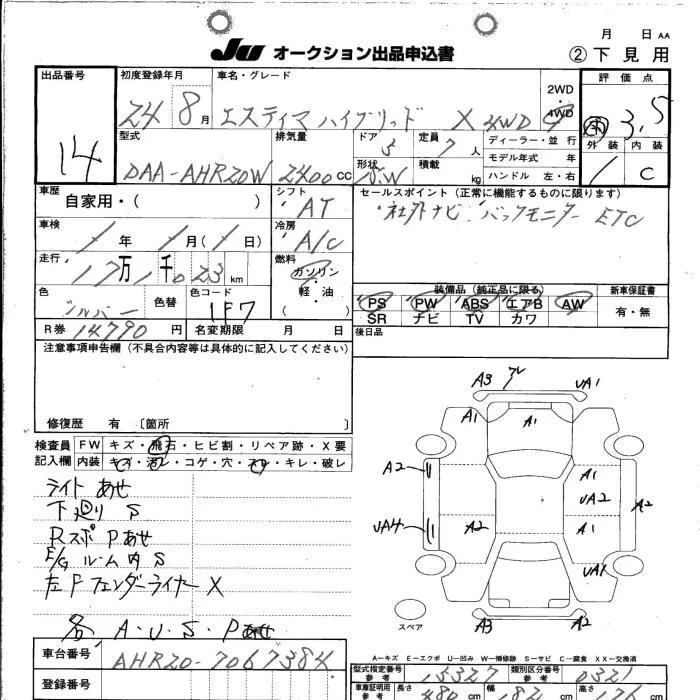 月 日 AA
JU オークション出品申込書 ② 下見用
出品番号 初度登録年月 車名・グレード 2WD・4WD 評価点
14 24 8月 エスティマ ハイブリッド X 4WD 3.5
外装 内装
型式 排気量 ドア 定員 ディーラー・並行
DAA-AHR20W 2400cc 5 7人 モデル年式 年
形状 積載 kg ハンドル 左・右 C
車歴 自家用・( ) シフト AT セールスポイント(正常に機能するものに限ります)
社外ナビ バックモニター ETC
車検 年 月( 日) 冷房 A/C
走行 17万1千023km 燃料 ガソリン・軽油 ( )
装備品(純正品に限る) 新車保証書
PS PW ABS エアB AW 有・無
SR ナビ TV カワ
色 シルバー 色替 色コード 1F7
R券 14790円 名変期限 月 日 後日品
注意事項申告欄(不具合内容等は具体的に記入してください)
修復歴 有 〔箇所 〕
検査員記入欄 FW キズ・飛石・ヒビ割・リペア跡・X要
内装 キズ・汚レ・コゲ・穴・スレ・キレ・破レ
ライト あせ
下廻り S
Rスポ Pあせ
E/G ルーム内 S
左Fフェンダーライナー X
各 A・U・S・Pあせ
A3 UA1
A1 A1
A2 A1
UA2 A2
UA4 A2 A1
UA1
スペア A3 A2
A-キズ E-エクボ U-凹み W-補修跡 S-サビ C-腐食 XX-交換済
車台番号 AHR20-7067384
型式指定番号 参考 15327 類別区分番号 参考 0321
登録番号
車庫証明用 参考 長さ 480cm 幅 182cm 高さ 176